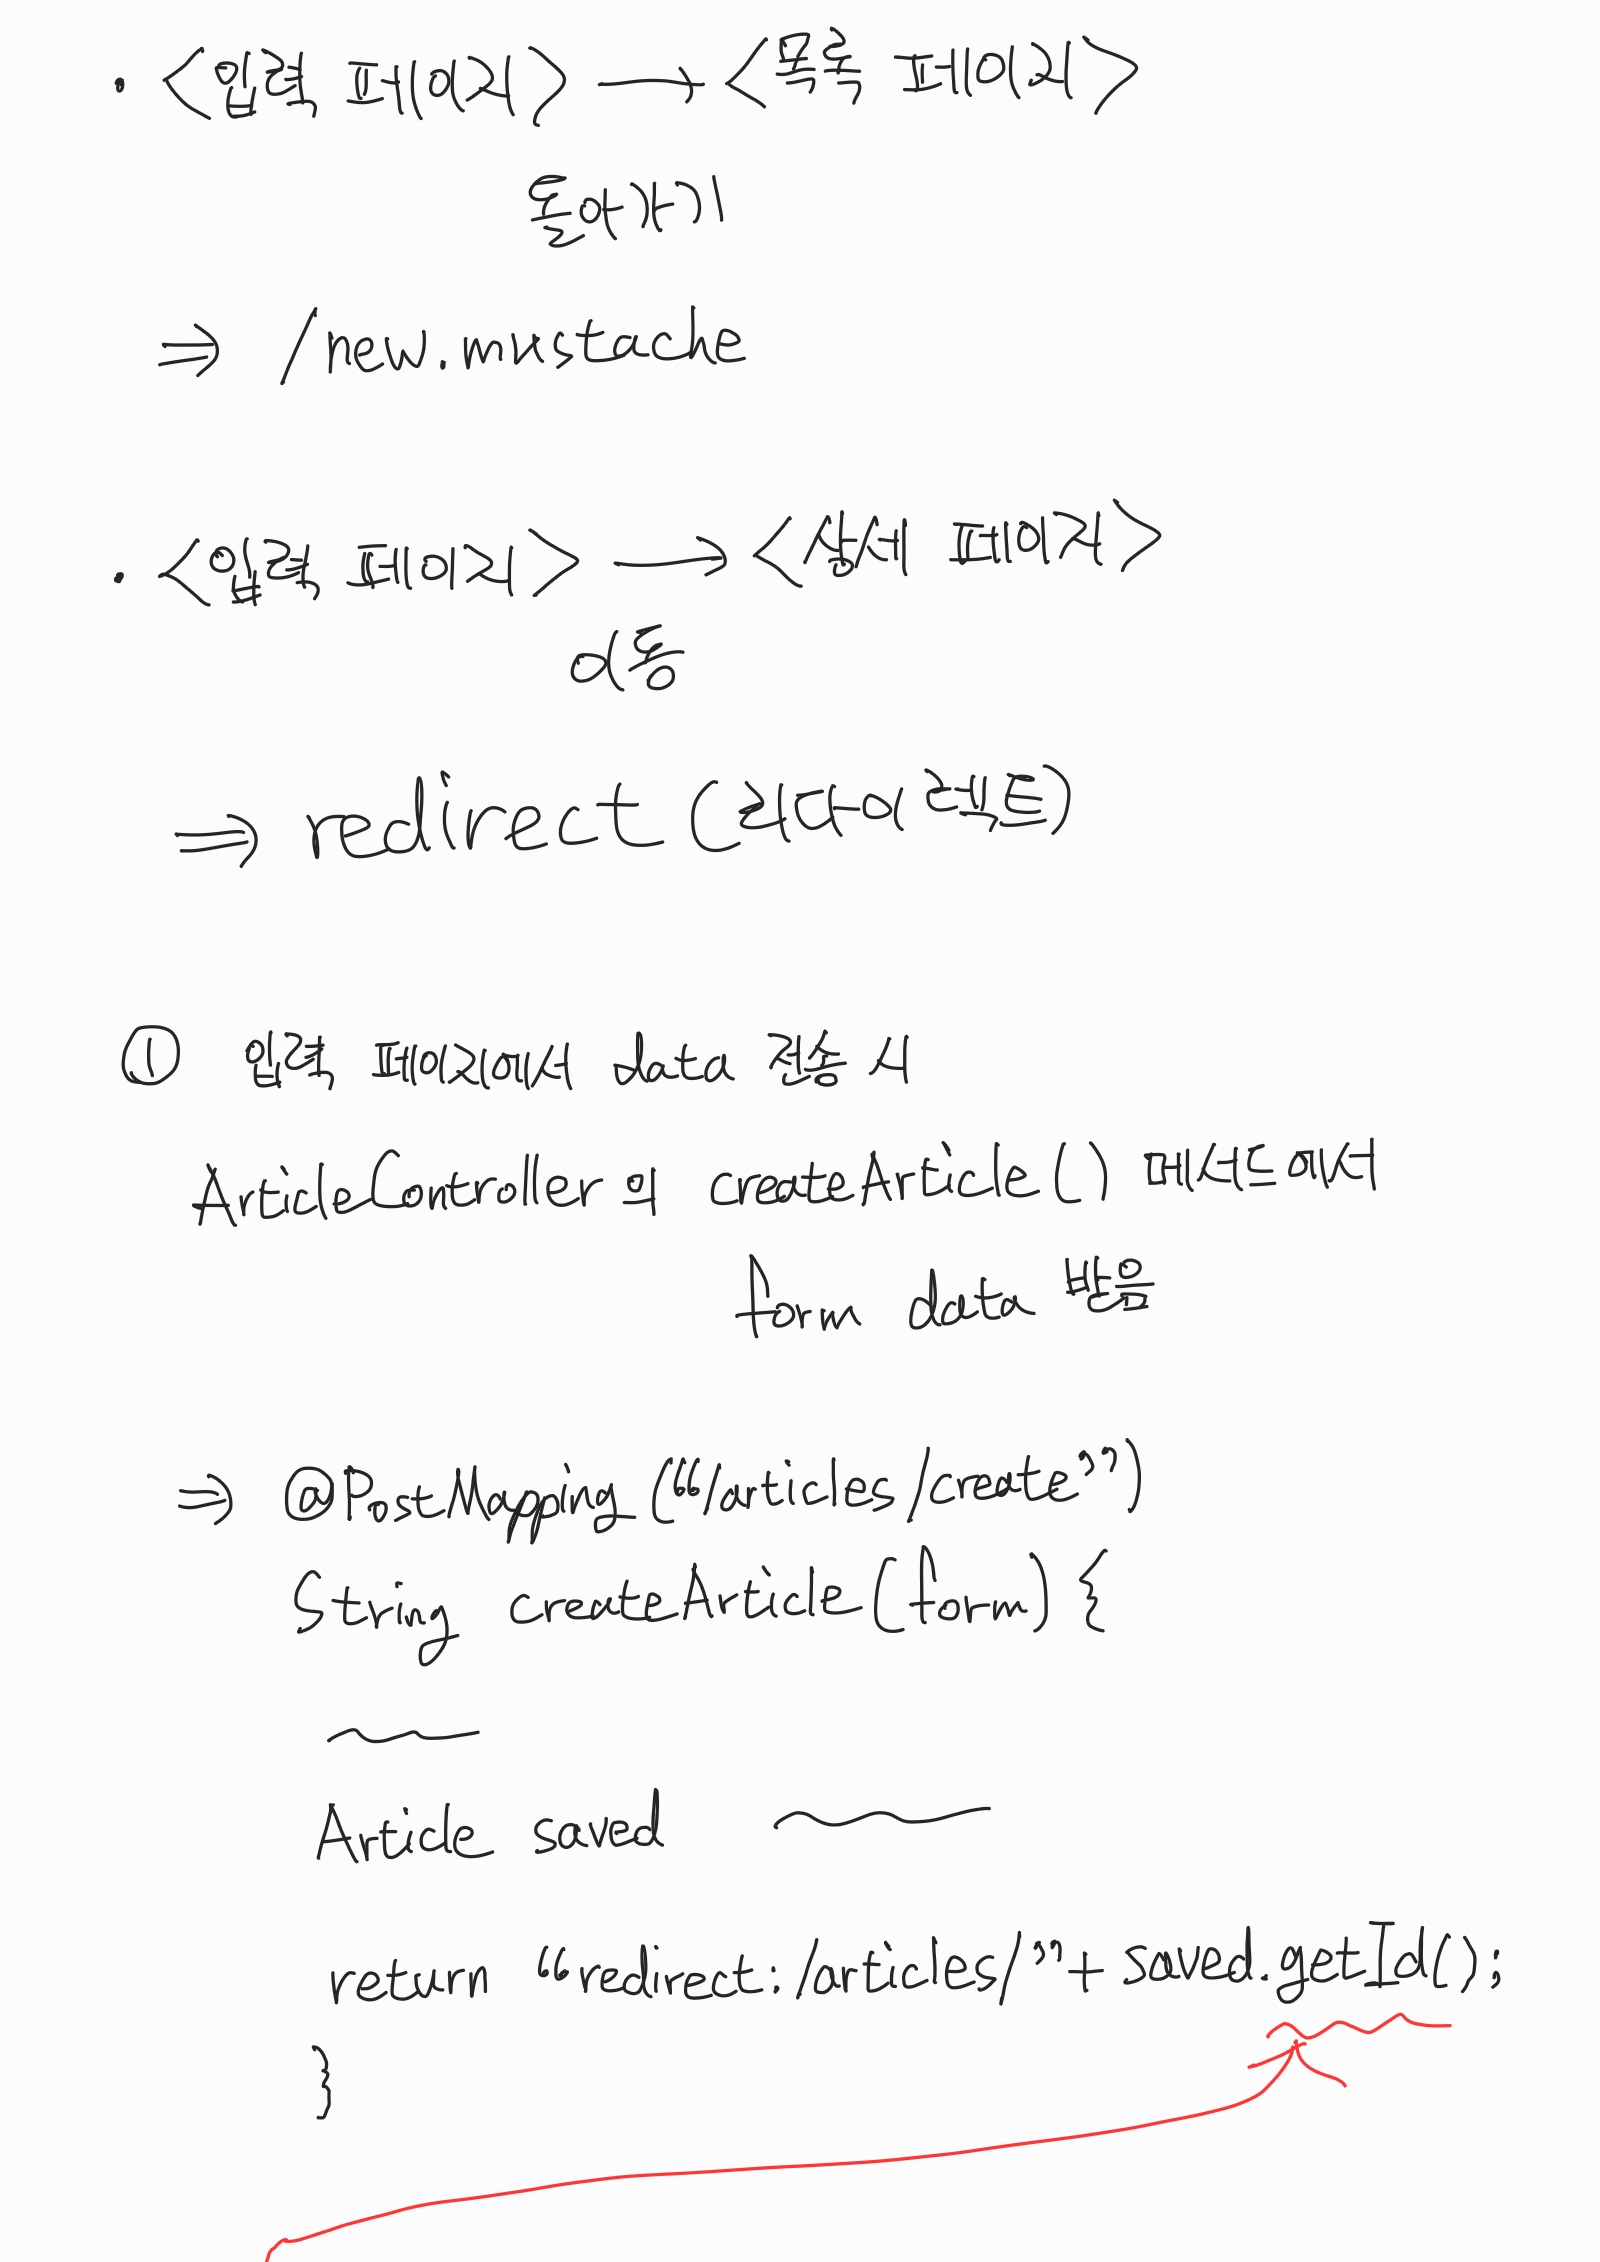 · <입력 페이지> → <목록 페이지>
돌아가기
⇒ /new.mustache
· <입력 페이지> → <상세 페이지>
이동
⇒ redirect (리다이렉트)
① 입력 페이지에서 data 전송 시
ArticleController의 createArticle() 메서드에서
form data 받음
⇒ @PostMapping (“/articles/create”)
String createArticle(form) {
Article saved
return “redirect:/articles/”+ saved.getId();
}